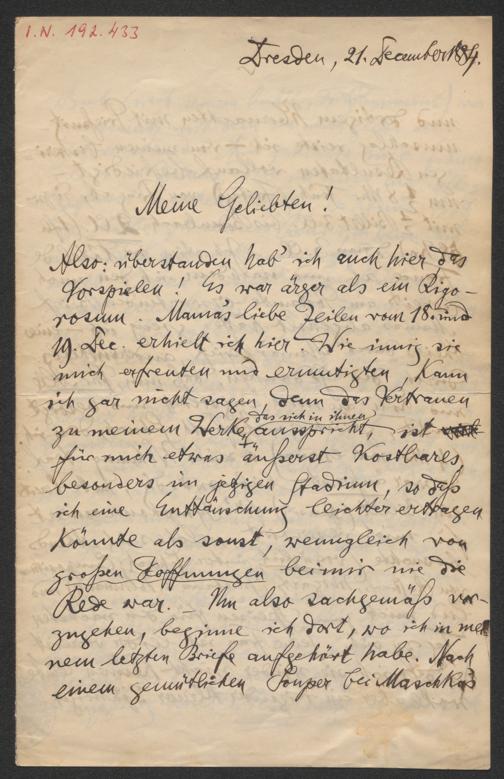 I.N. 192.433
Dresden, 21. December
Meine Geliebten!
Also: überstanden hab' ich auch hier das
Vorspielen! Es war ärger als ein Rigo-
rosum. Mama's liebe Zeilen vom 18. und
19. Dec. erhielt ich hier. Wie innig sie
mich erfreuten und ermutigten, kann
ich gar nicht sagen, denn das Vertrauen
das sich in ihnen
zu meinem Werke, ausspricht, ist
für mich etwas äußerst Kostbares,
besonders im jetzigen Stadium, so daß
ich eine Enttäuschung leichter ertragen
könnte als sonst, wenngleich von
großen Hoffnungen bei mir nie die
Rede war. – Um also sachgemäß vor-
zugehen, beginne ich dort, wo ich in mei
nem letzten Briefe aufgehört habe. Nach
einem gemütlichen Souper bei Maschka's